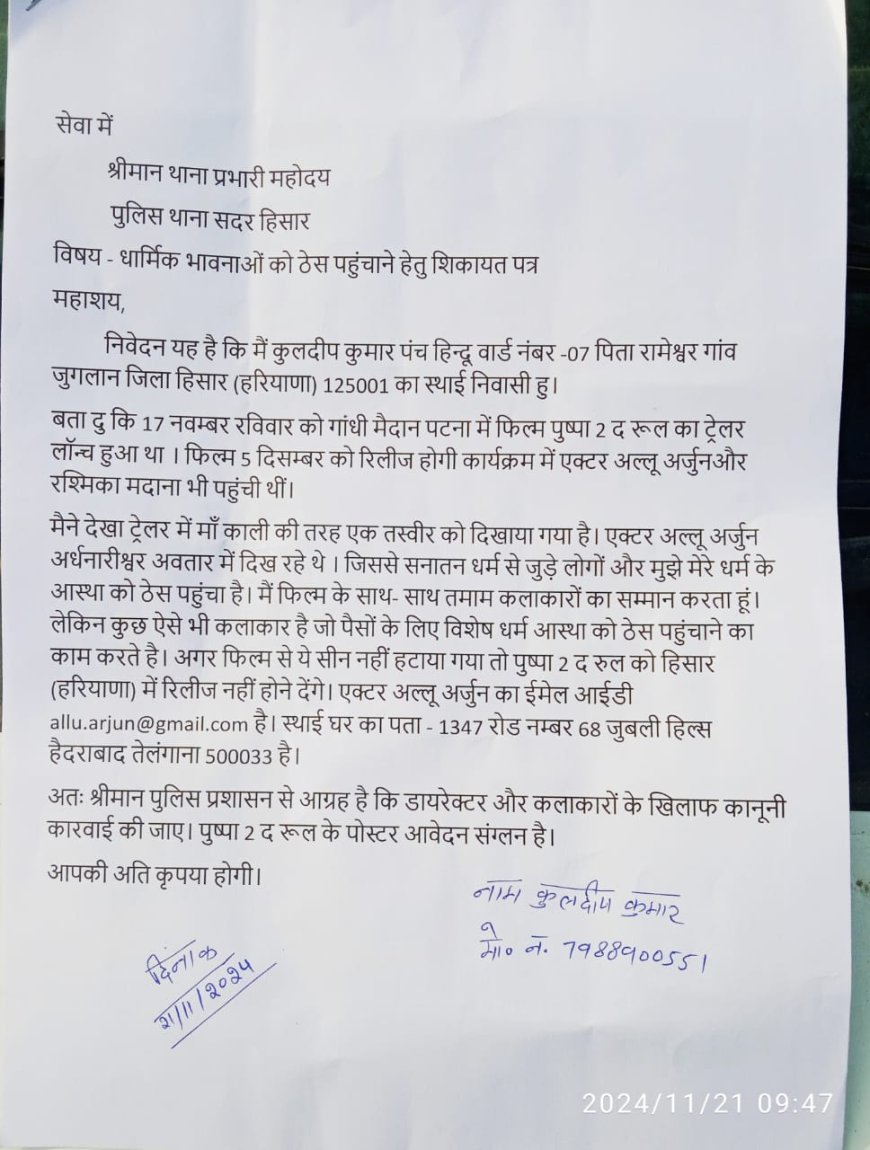 सेवा में
श्रीमान थाना प्रभारी महोदय
पुलिस थाना सदर हिसार
विषय - धार्मिक भावनाओं को ठेस पहुंचाने हेतु शिकायत पत्र
महाशय,
निवेदन यह है कि मैं कुलदीप कुमार पंच हिन्दू वार्ड नंबर -07 पिता रामेश्वर गांव
जुगलान जिला हिसार (हरियाणा) 125001 का स्थाई निवासी हु।
बता दु कि 17 नवम्बर रविवार को गांधी मैदान पटना में फिल्म पुष्पा 2 द रूल का ट्रेलर
लॉन्च हुआ था । फिल्म 5 दिसम्बर को रिलीज होगी कार्यक्रम में एक्टर अल्लू अर्जुनऔर
रश्मिका मदाना भी पहुंची थीं।
मैने देखा ट्रेलर में माँ काली की तरह एक तस्वीर को दिखाया गया है। एक्टर अल्लू अर्जुन
अर्धनारीश्वर अवतार में दिख रहे थे । जिससे सनातन धर्म से जुड़े लोगों और मुझे मेरे धर्म के
आस्था को ठेस पहुंचा है। मैं फिल्म के साथ- साथ तमाम कलाकारों का सम्मान करता हूं।
लेकिन कुछ ऐसे भी कलाकार है जो पैसों के लिए विशेष धर्म आस्था को ठेस पहुंचाने का
काम करते है। अगर फिल्म से ये सीन नहीं हटाया गया तो पुष्पा 2 द रुल को हिसार
(हरियाणा) में रिलीज नहीं होने देंगे। एक्टर अल्लू अर्जुन का ईमेल आईडी
allu.arjun@gmail.com है। स्थाई घर का पता - 1347 रोड नम्बर 68 जुबली हिल्स
हैदराबाद तेलंगाना 500033 है।
अतः श्रीमान पुलिस प्रशासन से आग्रह है कि डायरेक्टर और कलाकारों के खिलाफ कानूनी
कारवाई की जाए। पुष्पा 2 द रूल के पोस्टर आवेदन संग्लन है।
आपकी अति कृपया होगी।
नाम कुलदीप कुमार
मो० नं. 7988900551
दिनाक
21/11/2024
2024/11/21 09:47